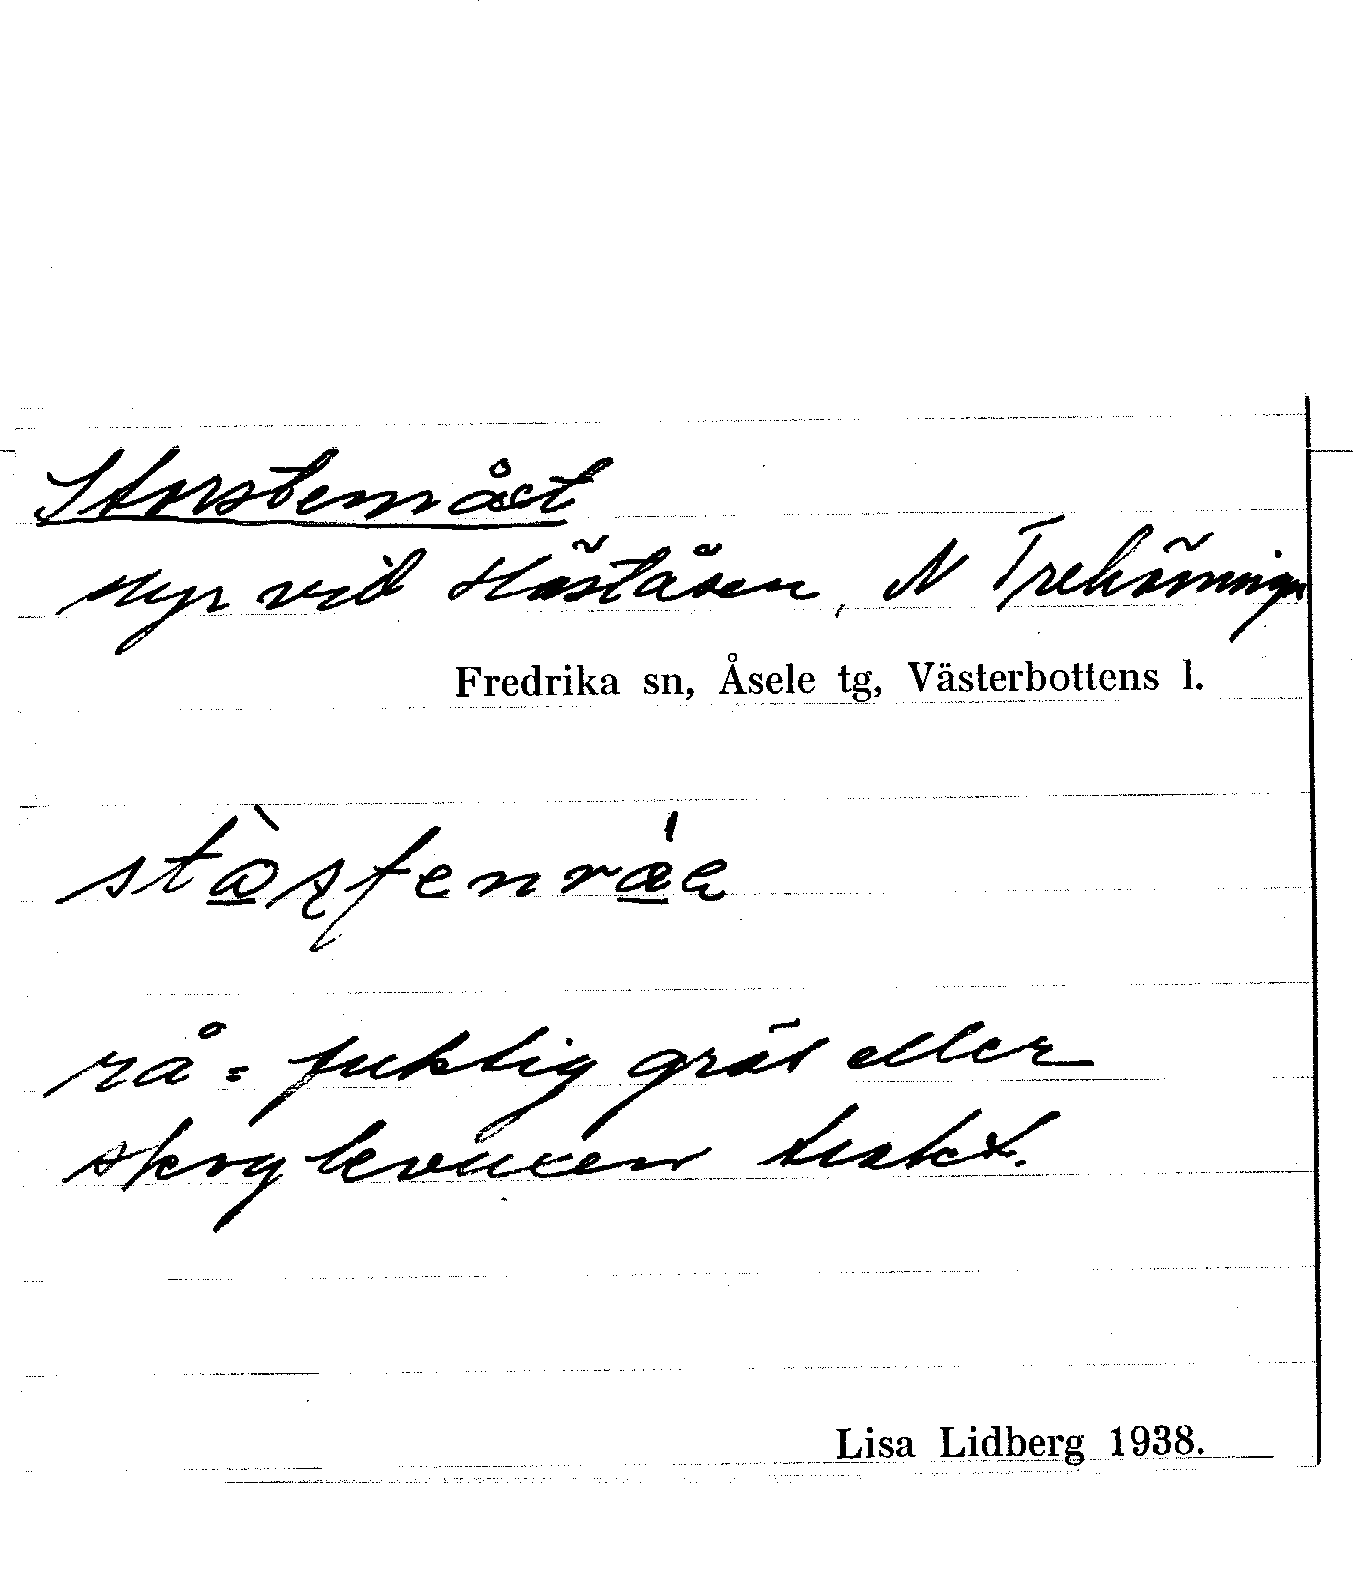 myr vid Häståsen, N Trehörningen
Fredrika sn, Åsele tg, Västerbottens l.
rå = fuktig gräs eller
skogbevuxen trakt.
Lisa Lidberg 1938.